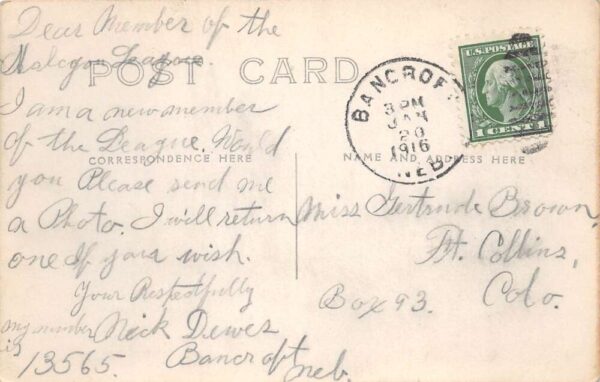 Dear Member of the
Halcyon League.
POST CARD
I am a new member
of the League. Would
CORRESPONDENCE HERE
you Please send me
a Photo. I will return
one If you wish.
Your Respectfully
my number Nick Dewes
is
13565. Bancroft
Neb.
BANCROFT
3 PM
JAN
20
1916
NEB
U.S. POSTAGE
1 CENT 1
NAME AND ADDRESS HERE
Miss Gertrude Brown,
Ft. Collins,
Box 93. Colo.